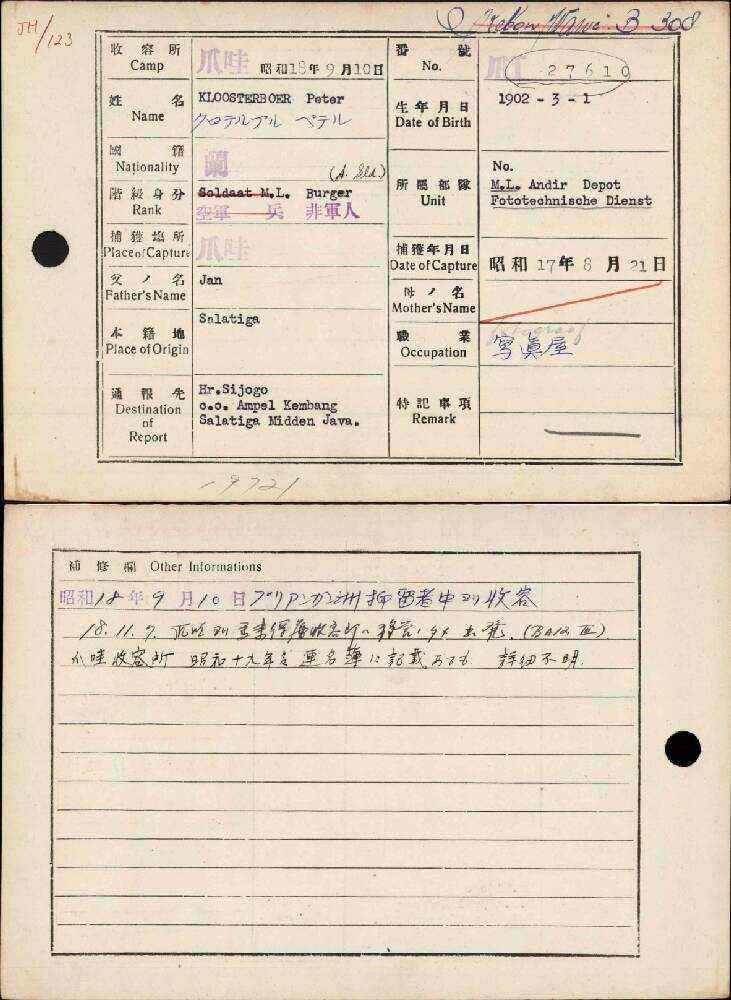 JM/123
B 308
收容所 Camp 爪哇 昭和18年9月10日
番號 No. 爪I 27610
姓名 Name KLOOSTERBOER Peter
クロテルブル ペテル
生年月日 Date of Birth 1902-3-1
國籍 Nationality 蘭
階級身分 Rank Soldaat M.L. Burger
空軍 兵 非軍人
所屬部隊 Unit No.
M.L. Andir Depot
Fototechnische Dienst
捕獲場所 Place of Capture 爪哇
捕獲年月日 Date of Capture 昭和17年8月21日
父ノ名 Father's Name Jan
母ノ名 Mother's Name
本籍地 Place of Origin Salatiga
職業 Occupation fotograaf
寫眞屋
通報先 Destination of Report Hr.Sijogo
c.o. Ampel Kembang
Salatiga Midden Java.
特記事項 Remark
19721
補修欄 Other Informations
昭和18年9月10日 プリアンガン洲抑留者中ヨリ收容
18.11.9. 爪哇ヨリ
爪哇收容所 昭和十九年 連名簿ニ記載アルモ 詳細不明.